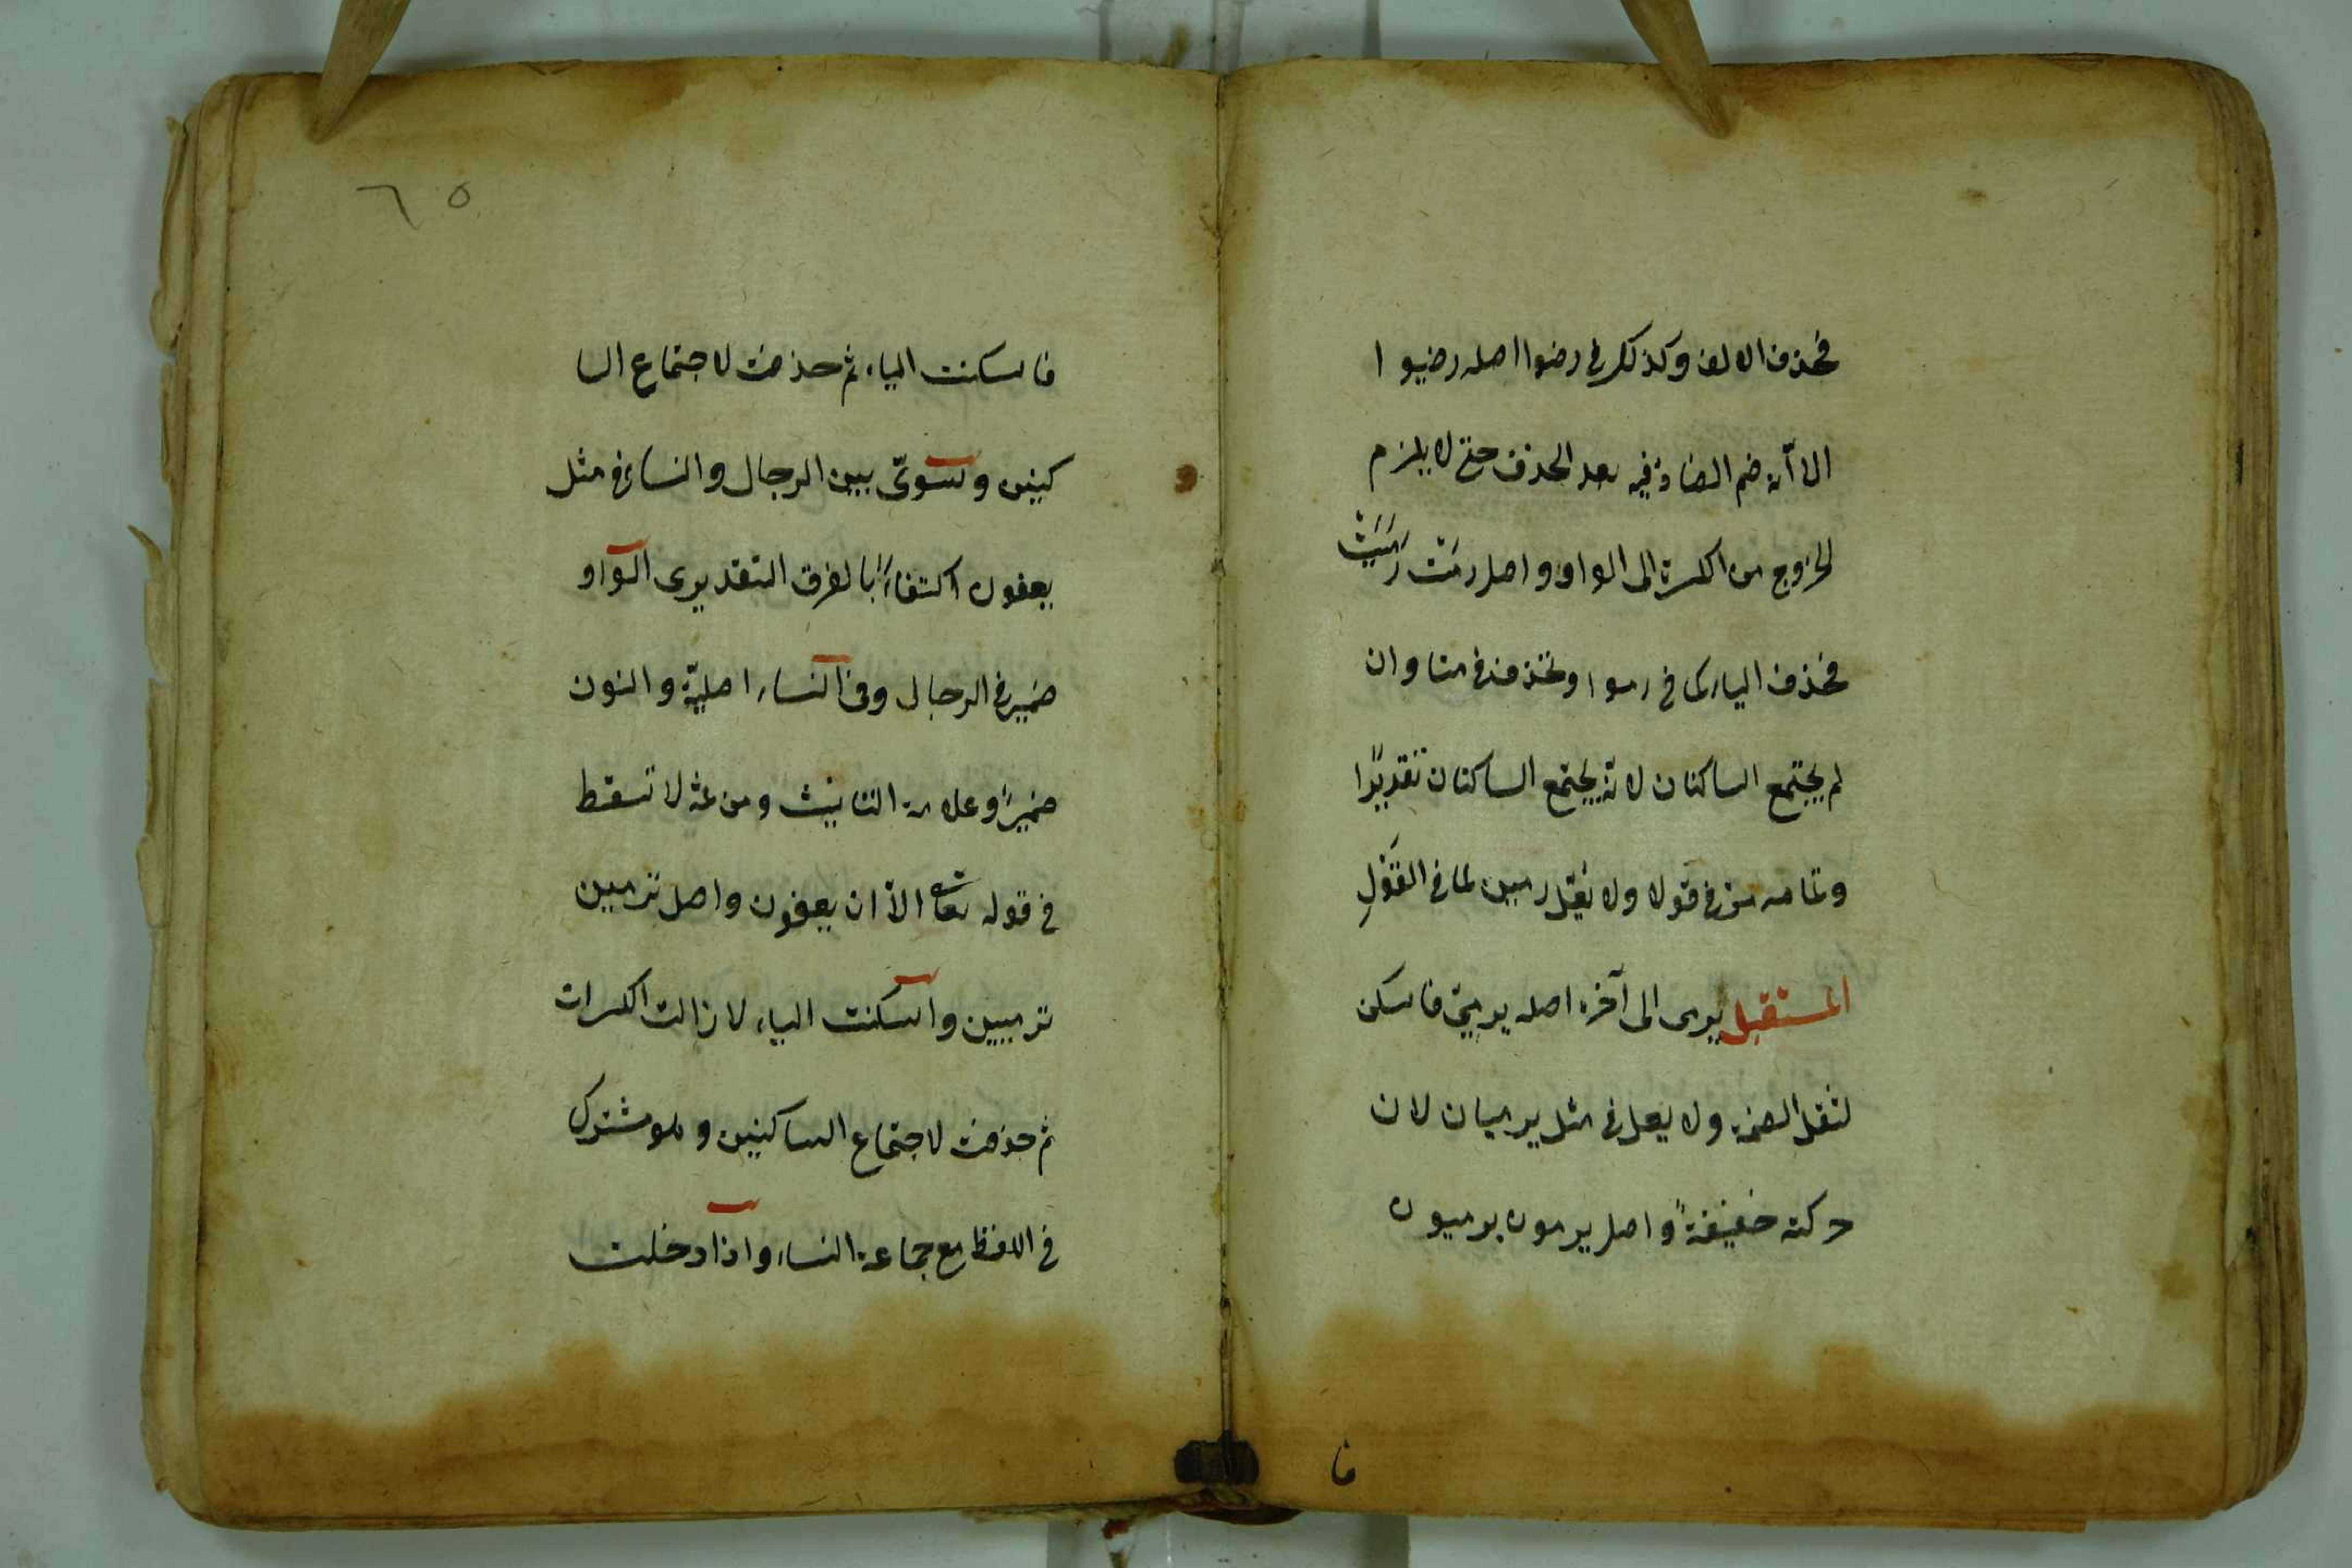 فحذف الالف وكذلك في رضوا اصله رضيوا
الا أنه ضم الضاد فيه بعد الحذف حتى لا يلزم
الخروج من الكسرة الى الواو واصل رمَتْ رَمَيَتْ
فحذف الياء كما في رموا وتحذف في رمتا وان
لم يجتمع الساكنان لانه يجتمع الساكنان تقديرًا
وتمامه مرّ في قولا ولا يعل رمين لما في القَوْلِ
المستقبل يرمى الى آخره اصله يرميُ فاسكن
لثقل الضمة ولا يعل في مثل يرميان لان
حركته خفيفةً واصل يرمون يرميون
فا
٦٥
فاسكنت الياء ثم حذفت لاجتماع السا
كنين وتسوّى بين الرجال والنساء في مثل
يعفون اكتفاءً بالفرق التقديرى الواو
ضمير في الرجال وفي النساء اصليّة والنون
ضميرًا وعلامة التانيث ومن ثمه لا تسقط
في قوله تعا الاّ ان يعفون واصل ترمين
ترميين واسكنت الياء لازالت الكسرات
ثم حذفت لاجتماع الساكنين وهو مشترك
في اللفظ مع جماعة النساء واذا دخلت